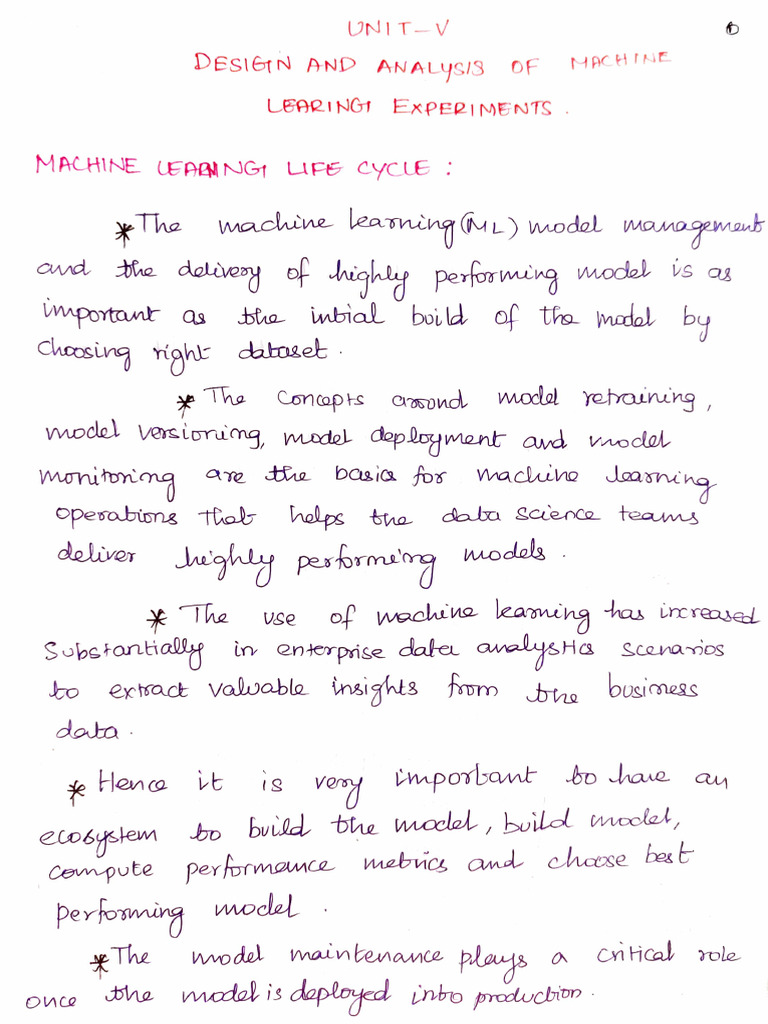 UNIT-V
①
DESIGN AND ANALYSIS OF MACHINE
LEARING EXPERIMENTS.
MACHINE LEARNING LIFE CYCLE :
* The machine learning (ML) model management
and the delivery of highly performing model is as
important as the intial build of the model by
choosing right dataset.
* The concepts around model retraining,
model versioning, model deployment and model
monitoring are the basis for machine learning
operations that helps the data science teams
deliver highly performing models.
* The use of machine learning has increased
Substantially in enterprise data analystics scenarios
to extract valuable insights from the business
data.
* Hence it is very important to have an
ecosystem to build the model, build model,
compute performance metrics and choose best
performing model.
* The model maintenance plays a critical role
once the model is deployed into production.